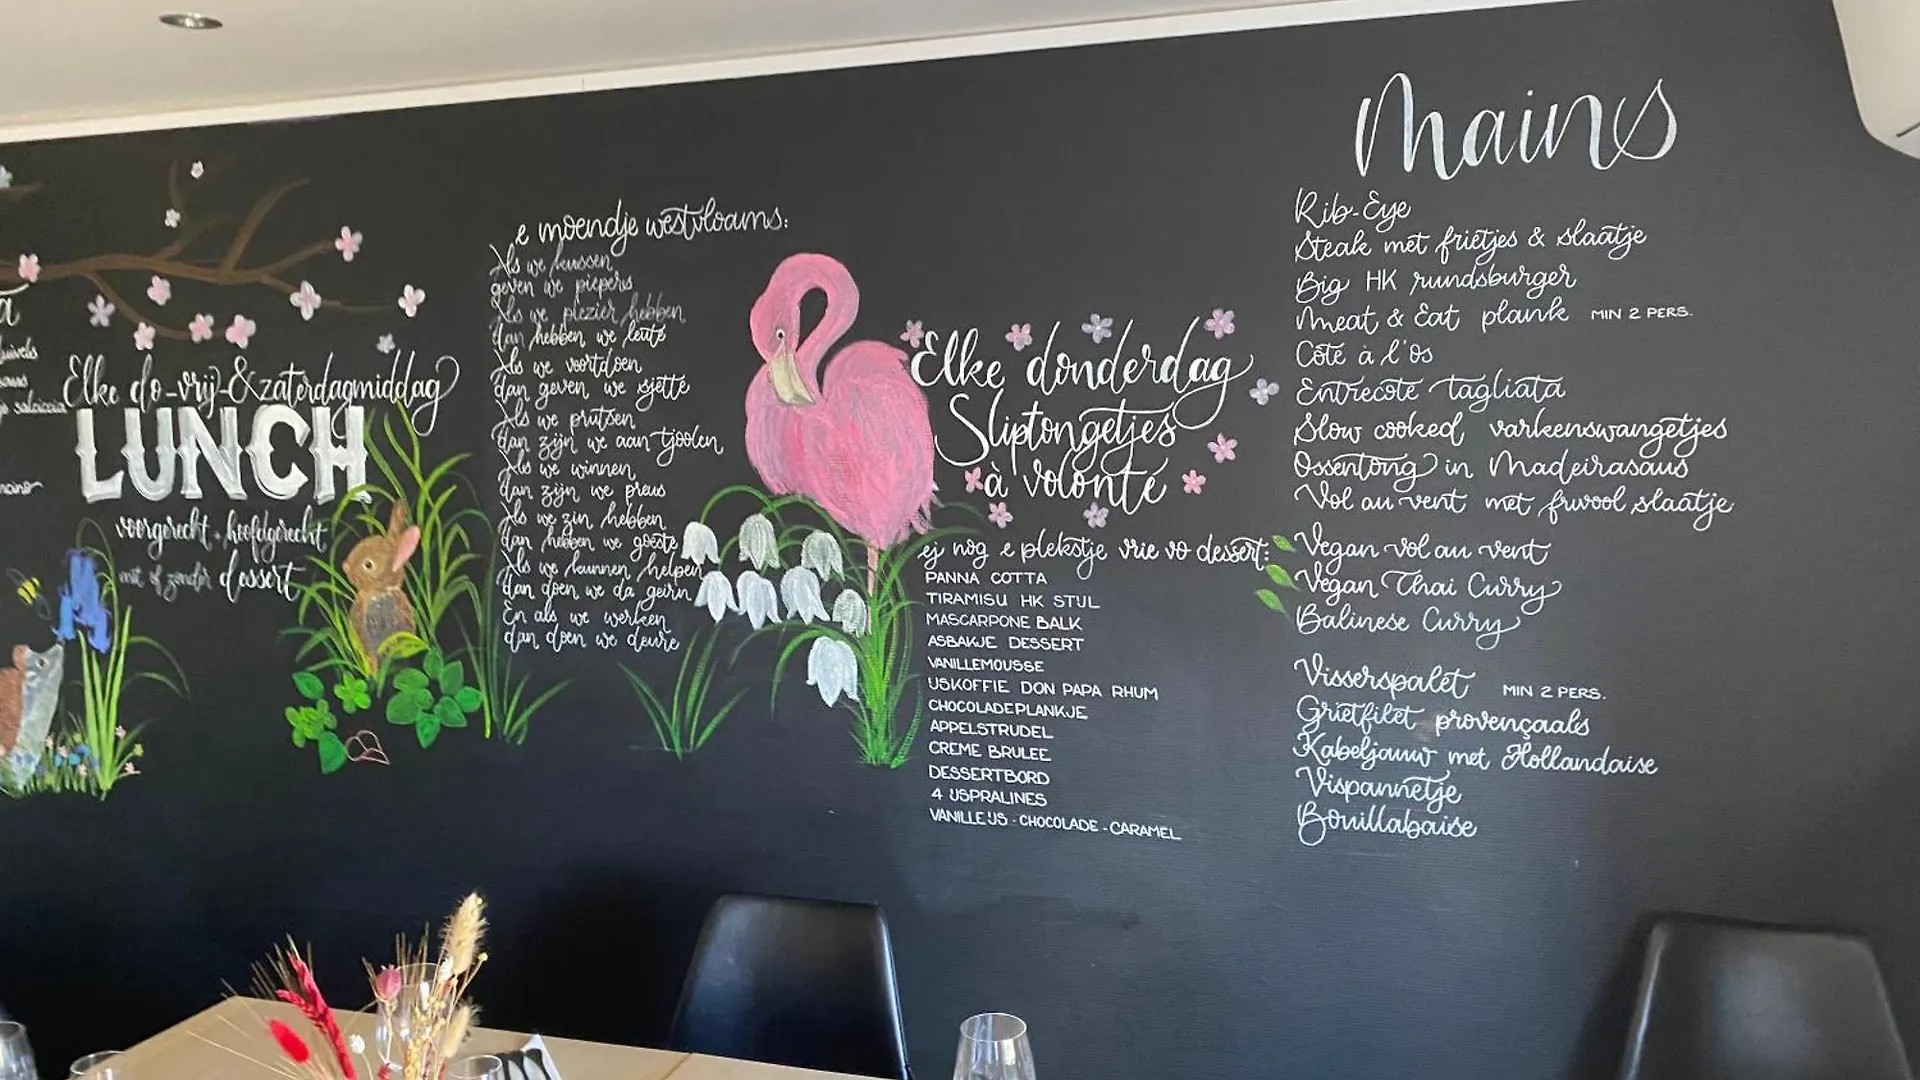 Elke do-vrij-&zaterdagmiddag
LUNCH
voorgerecht + hoofdgerecht
met of zonder dessert
e moendje westvloams:
Als we kussen
geven we piepers
Als we plezier hebben
dan hebben we leute
Als we voortdoen
dan geven we sjette
Als we prutsen
dan zijn we aan tjoolen
Als we winnen
dan zijn we preus
Als we zin hebben
dan hebben we goeste
Als we kunnen helpen
dan doen we da geirn
En als we werken
dan doen we deure
Elke donderdag
Sliptongetjes
à volonté
ej nog e plekstje vrie vo dessert:
PANNA COTTA
TIRAMISU HK STIJL
MASCARPONE BALK
ASBAKJE DESSERT
VANILLEMOUSSE
IJSKOFFIE DON PAPA RHUM
CHOCOLADEPLANKJE
APPELSTRUDEL
CREME BRULEE
DESSERTBORD
4 IJSPRALINES
VANILLE IJS - CHOCOLADE - CARAMEL
Mains
Rib-Eye
Steak met frietjes & slaatje
Big HK rundsburger
Meat & Eat plank MIN 2 PERS.
Côte à l'os
Entrecote tagliata
Slow cooked varkenswangetjes
Ossentong in Madeirasaus
Vol au vent met frivool slaatje
Vegan vol au vent
Vegan Thai Curry
Balinese Curry
Visserspalet MIN 2 PERS.
Grietfilet provençaals
Kabeljauw met Hollandaise
Vispannetje
Bouillabaise